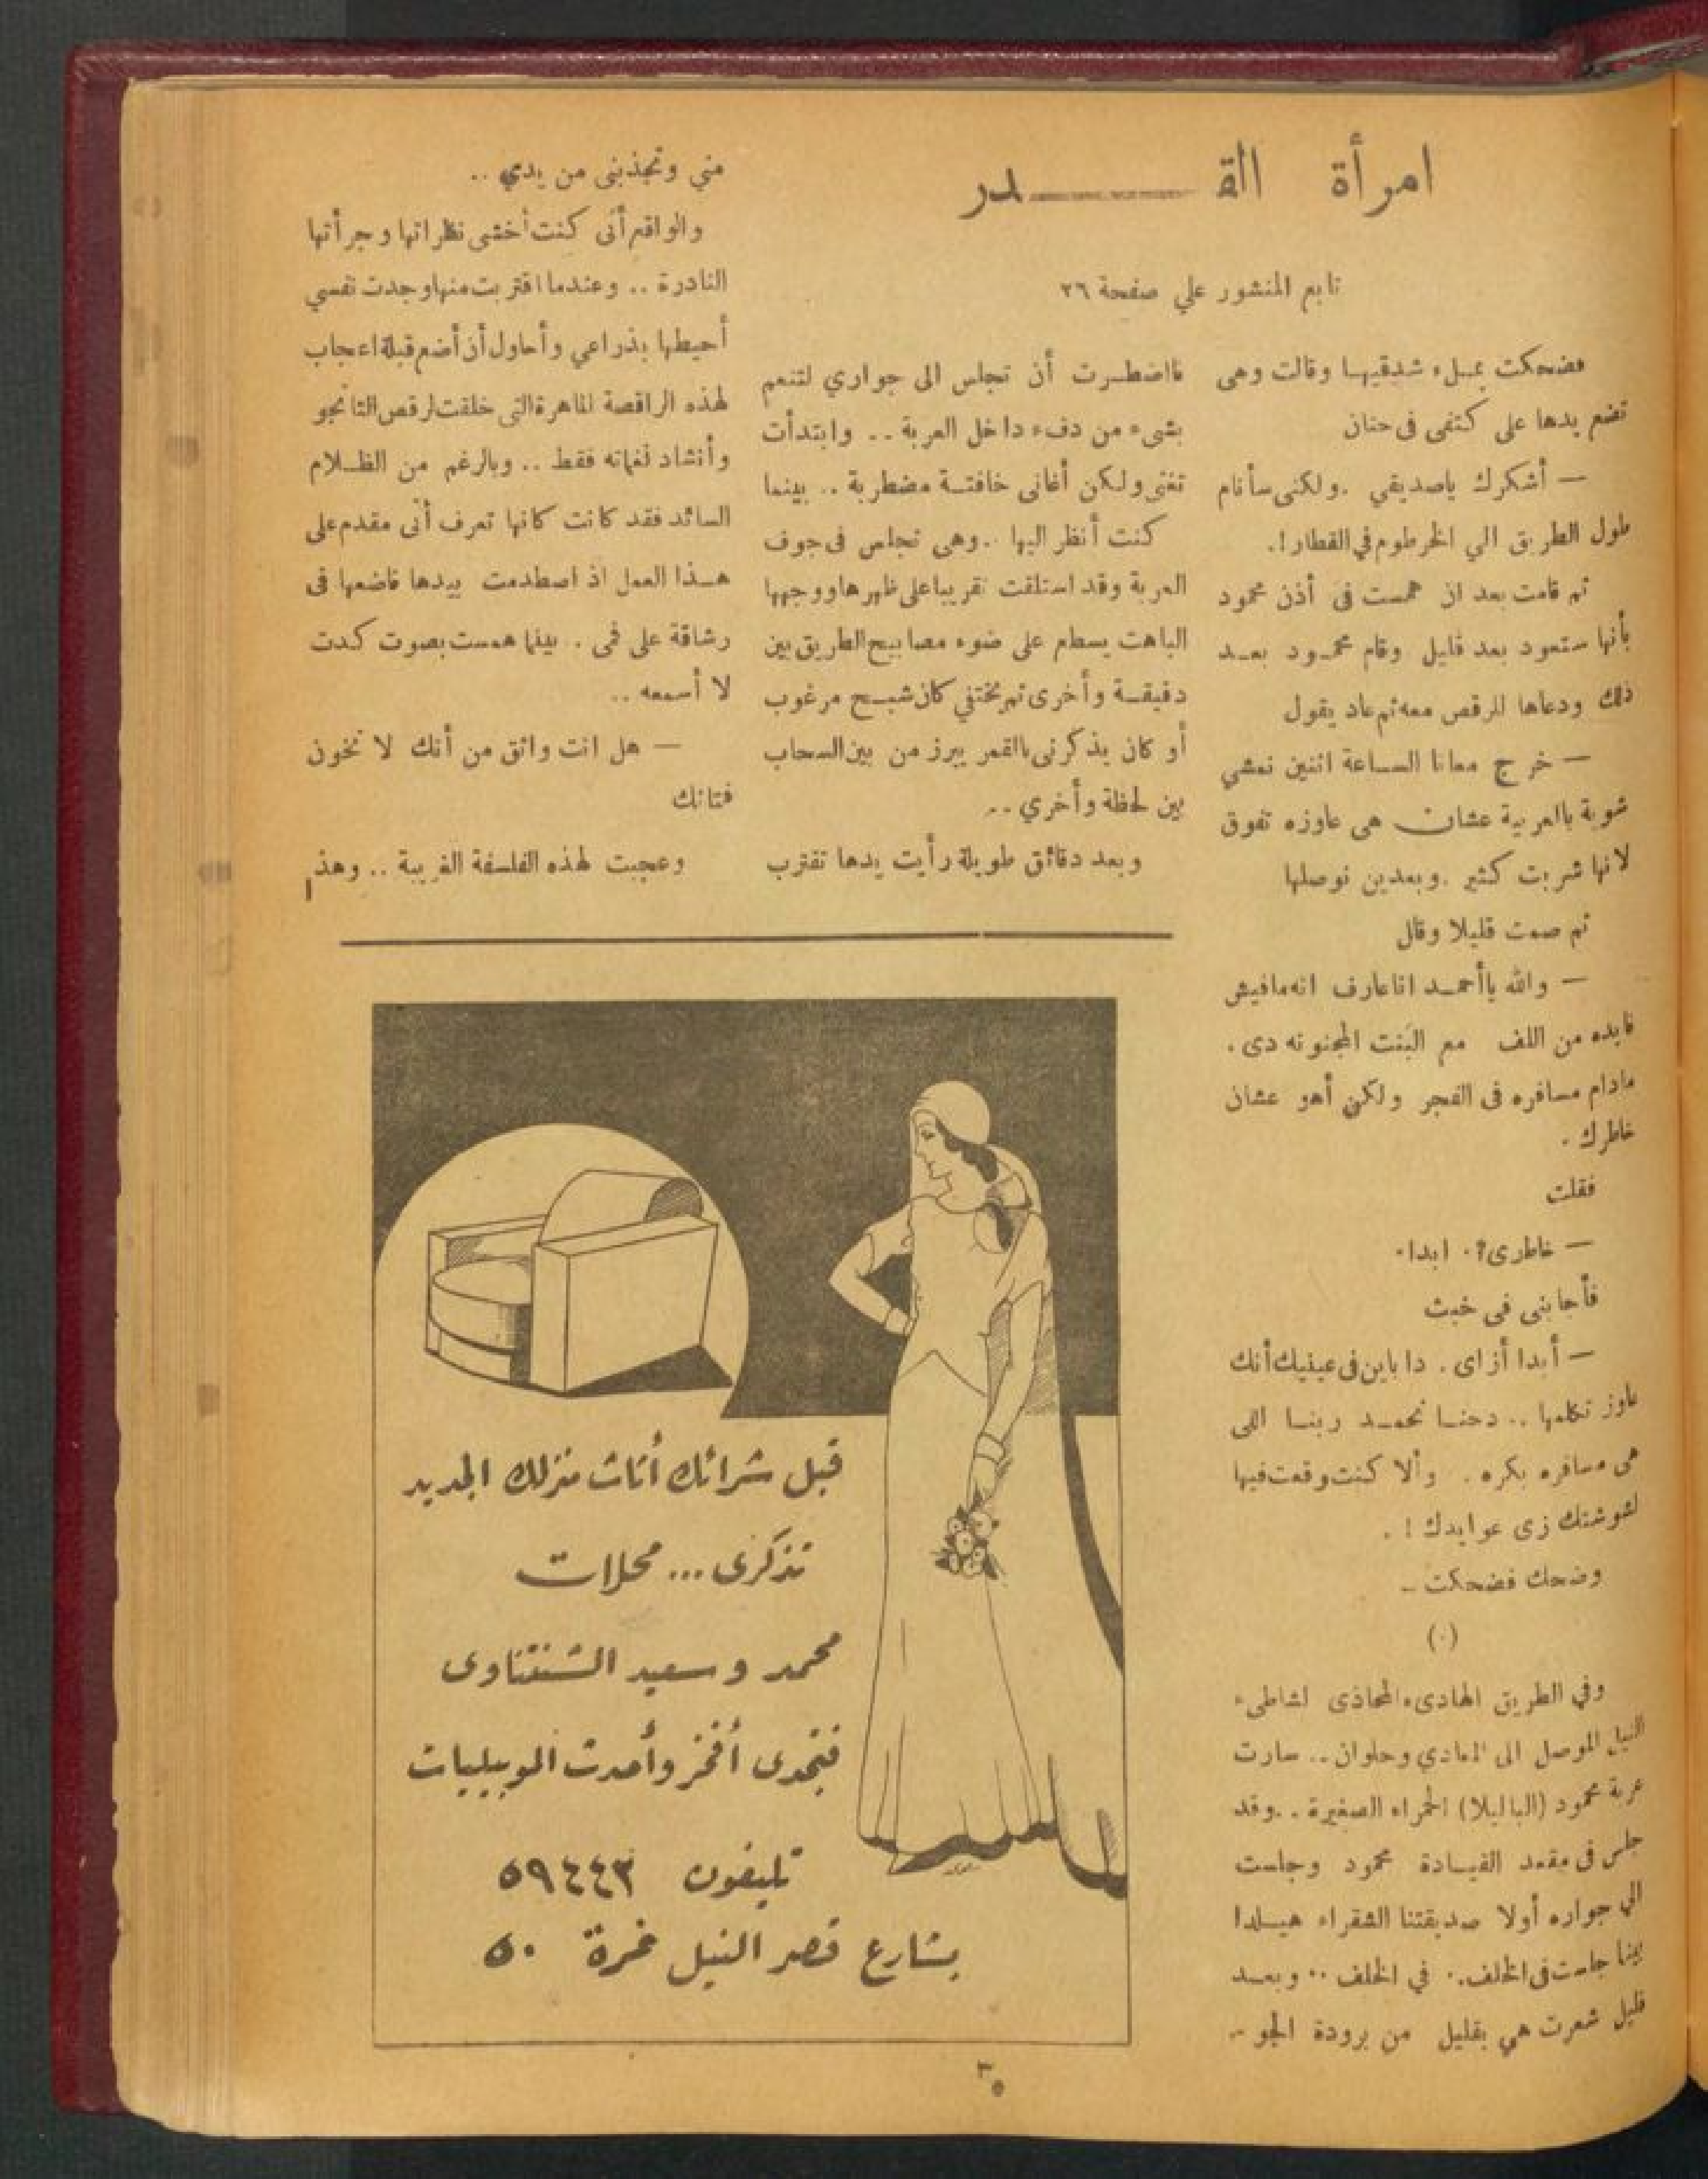 امرأة القــــدر
تابع المنشور علي صفحة ٢٦
فضحكت بمـلء شدقيهـا وقالت وهى
تضع يدها على كتفى فى حنان
— أشكرك ياصديقي . ولكنى سأنام
طول الطريق الي الخرطوم في القطار !.
ثم قامت بعد ان همست فى أذن محمود
بأنها ستعود بعد قليل وقام محمـود بعـد
ذلك ودعاها للرقص معه ثم عاد يقول
— خرج معانا السـاعة اثنين نمشي
شوية بالعربية عشان هى عاوزه تفوق
لانها شربت كثير . وبعدين نوصلها
ثم صمت قليلا وقال
— والله ياأحمـد انا عارف انه مافيش
فايده من اللف مع البنت المجنونه دى .
مادام مسافره فى الفجر ولكن أهو عشان
خاطرك .
فقلت
— خاطرى ؟ . ابدا .
فأجابنى فى خبث
— أبدا أزاى . دا باين فى عينيك أنك
عاوز تكلمها .. دحنـا نحمـد ربنـا اللى
هى مسافره بكره . وألا كنت وقعت فيها
لشوشتك زى عوايدك ! .
وضحك فضحكت ..
(٠)
وفي الطريق الهادىء المحاذى لشاطىء
النيل الموصل الى المعادي وحلوان .. سارت
عربة محمود (الباليلا) الحمراء الصغيرة .. وقد
جلس فى مقعد القيـادة محمود وجلست
الي جواره أولا صديقتنا الشقراء هيـلدا
بينما جلست فى الخلف .. في الخلف .. وبعـد
قليل شعرت هي بقليل من برودة الجو ..
فااضطـرت أن تجلس الى جواري لتنعم
بشىء من دفء داخل العربة .. وابتدأت
تغنى ولكن أغانى خافتـة مضطربة .. بينما
كنت أنظر اليها .. وهى تجلس فى جوف
العربة وقد استلقت تقريبا على ظهرها ووجهها
الباهت يسطع على ضوء مصابيح الطريق بين
دقيقـة وأخرى ثم تختفي كان شبـح مرغوب
أو كان يذكرنى بالقمر يبرز من بين السحاب
بين لحظة وأخري ..
وبعد دقائق طويلة رأيت يدها تقترب
مني وتجذبنى من يدي ..
والواقع أنى كنت أخشى نظراتها وجرأتها
النادرة .. وعندما اقتربت منها وجدت نفسي
أحيطها بذراعي وأحاول أن أضع قبلة اعجاب
لهذه الراقصة الماهرة التى خلقت لرقص التانجو
وأنشاد نغماته فقط .. وبالرغم من الظـلام
السائد فقد كانت كانها تعرف أنى مقدم على
هـذا العمل اذ اصطدمت بيدها فاضعها فى
رشاقة على فمى . بينما همست بصوت كدت
لا أسمعه ..
— هل انت واثق من أنك لا تخون
فتاتك
وعجبت لهذه الفلسفة الغريبة .. وهذا
قبل شرائك أثاث منزلك الجديد
تذكرى ... محلات
محمد وسعيد الشنتناوى
فتجدى أفخر وأحدث الموبيليات
تليفون ٥٩٤٤٣
بشارع قصر النيل نمرة ٥٠
٣٥